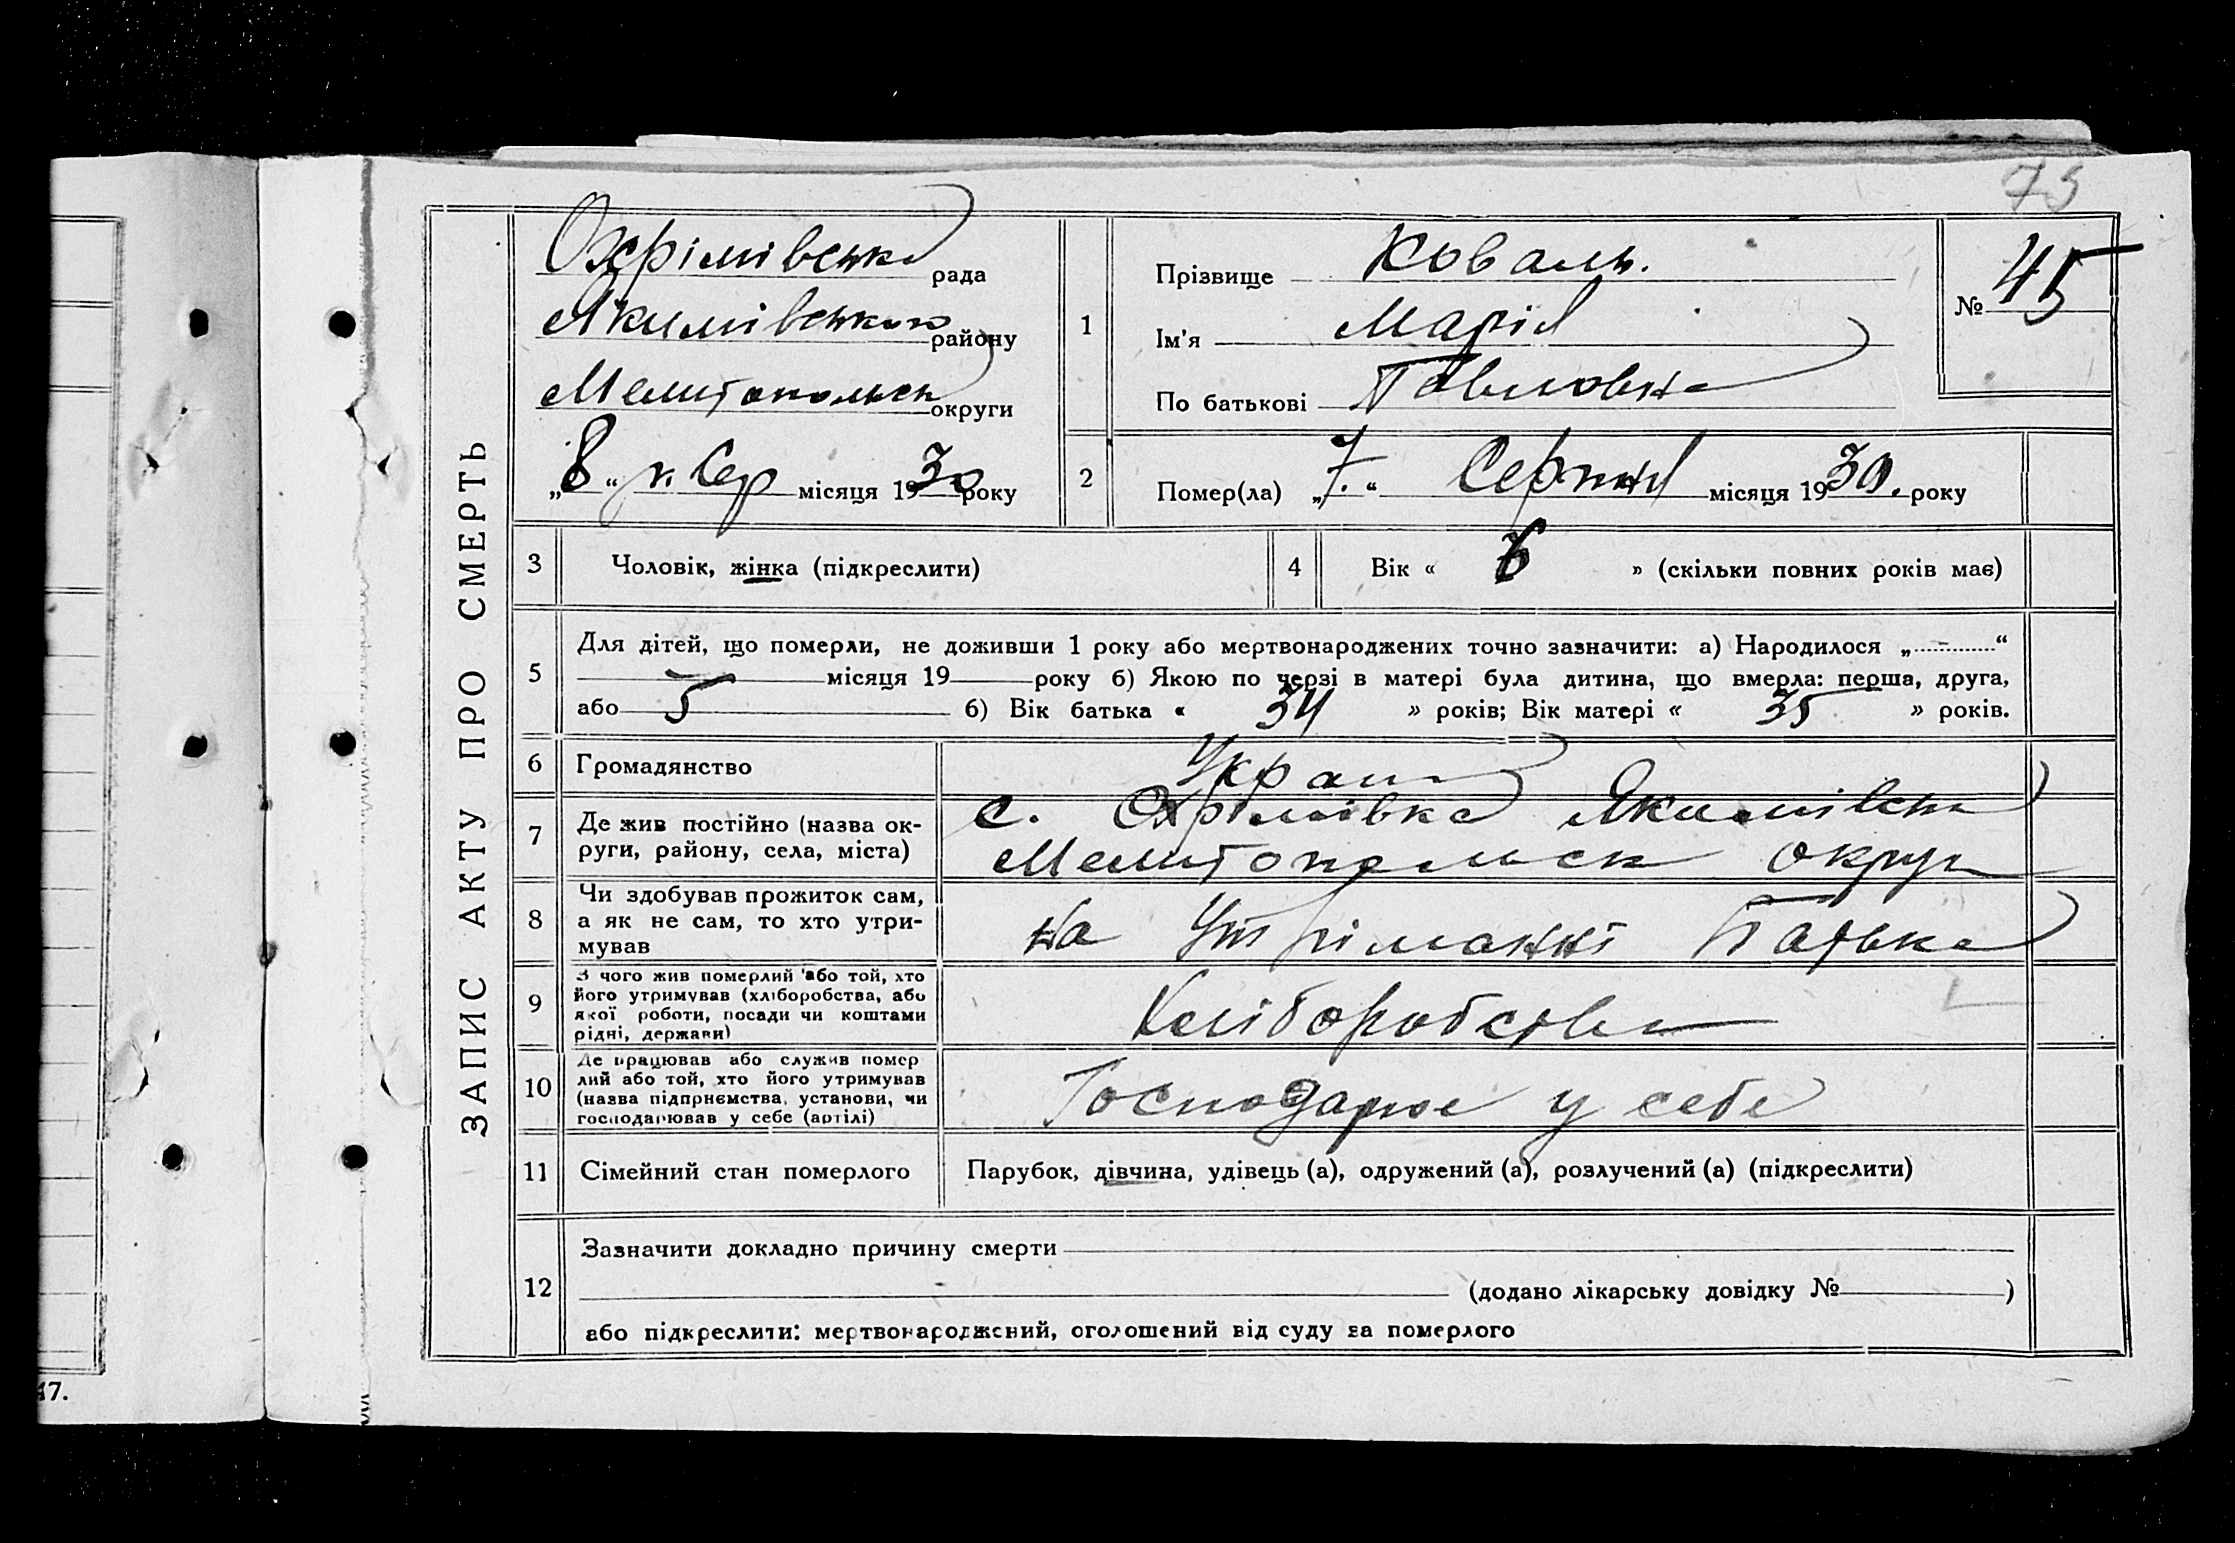 73
ЗАПИС АКТУ ПРО СМЕРТЬ
Охрімівська рада
Якимівського району
Мелитопольськ округи
„8“ м. Сер місяця 1930 року
1
Прізвище Коваль.
Ім'я Марія
По батькові Павловна
№ 45
2
Помер(ла) „7.“ Серпня місяця 1930. року
3
Чоловік, жінка (підкреслити)
4
Вік « » (скільки повних років має)
5
Для дітей, що померли, не доживши 1 року або мертвонароджених точно зазначити: а) Народилося „-“
місяця 19 року б) Якою по черзі в матері була дитина, що вмерла: перша, друга,
або 5 б) Вік батька « 34 » років; Вік матері « 35 » років.
6
Громадянство
Украин
7
Де жив постійно (назва ок-
руги, району, села, міста)
с. Охрімівка Якимівськ
Мелитопольск округ
8
Чи здобував прожиток сам,
а як не сам, то хто утри-
мував
на Утріманні Батька
9
З чого жив померлий або той, хто
його утримував (хліборобства, або
якої роботи, посади чи коштами
рідні, держави)
Хліборобства
10
Де працював або служив помер
лий або той, хто його утримував
(назва підприємства, установи, чи
господарював у себе (артілі)
Господарює у себе
11
Сімейний стан померлого
Парубок, дівчина, удівець (а), одружений (а), розлучений (а) (підкреслити)
12
Зазначити докладно причину смерти
(додано лікарську довідку № )
або підкреслити: мертвонароджений, оголошений від суду за померлого
17.